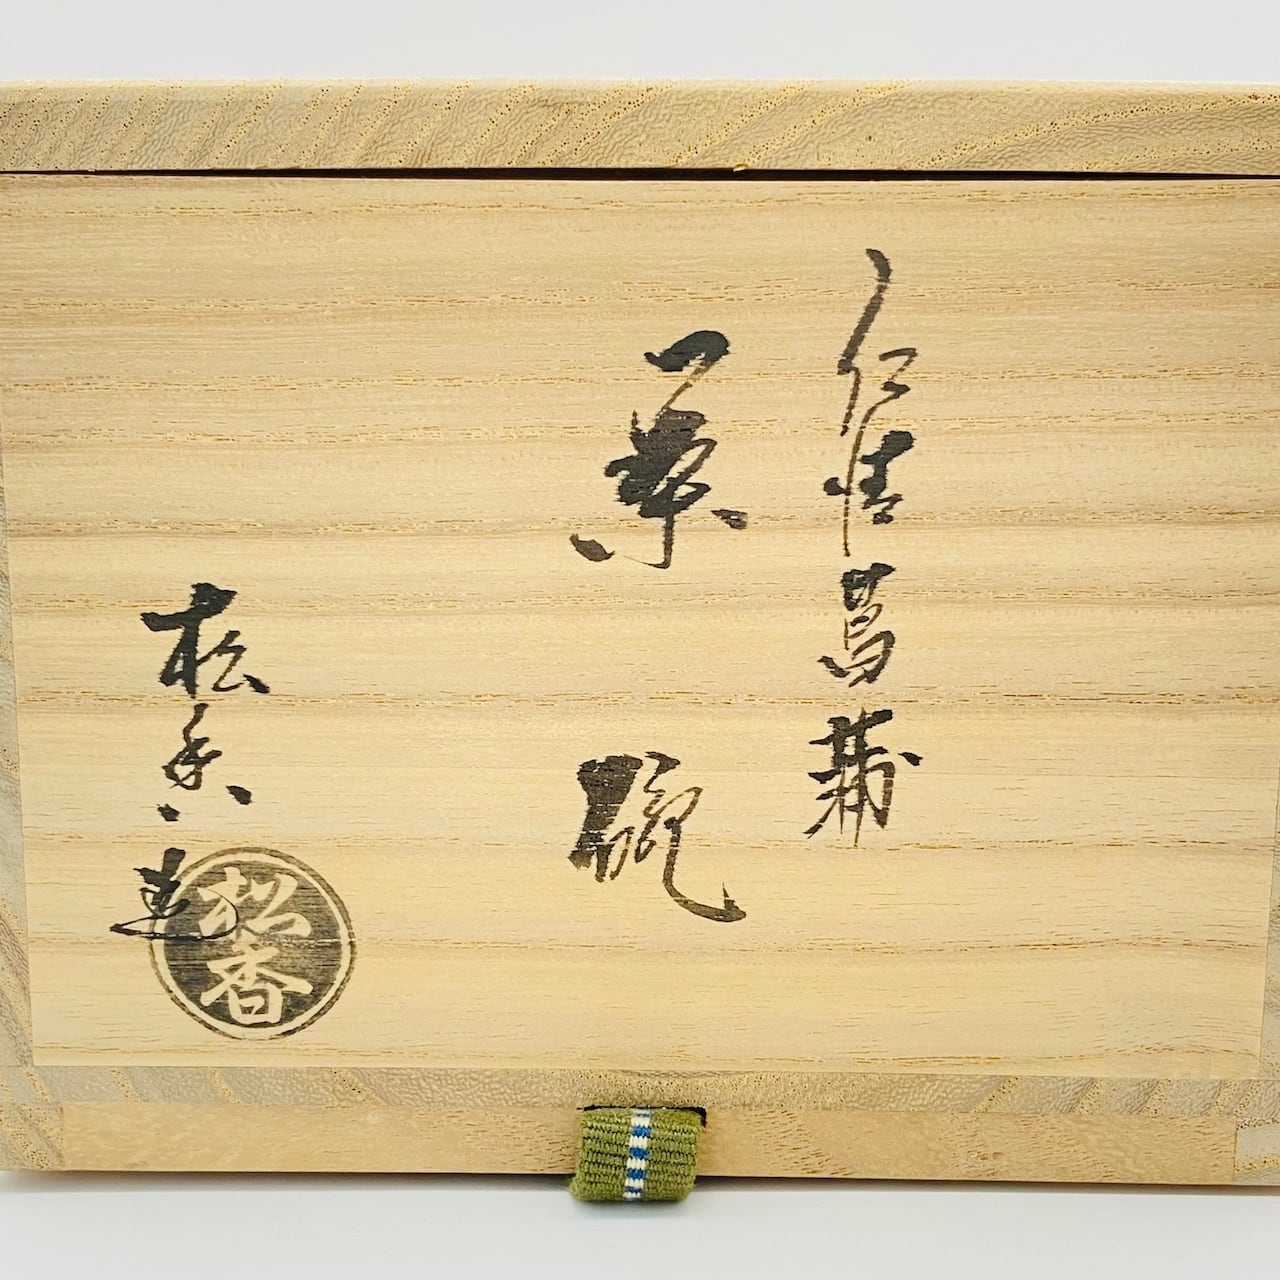 仁清菖蒲
茶碗
松香造
松香